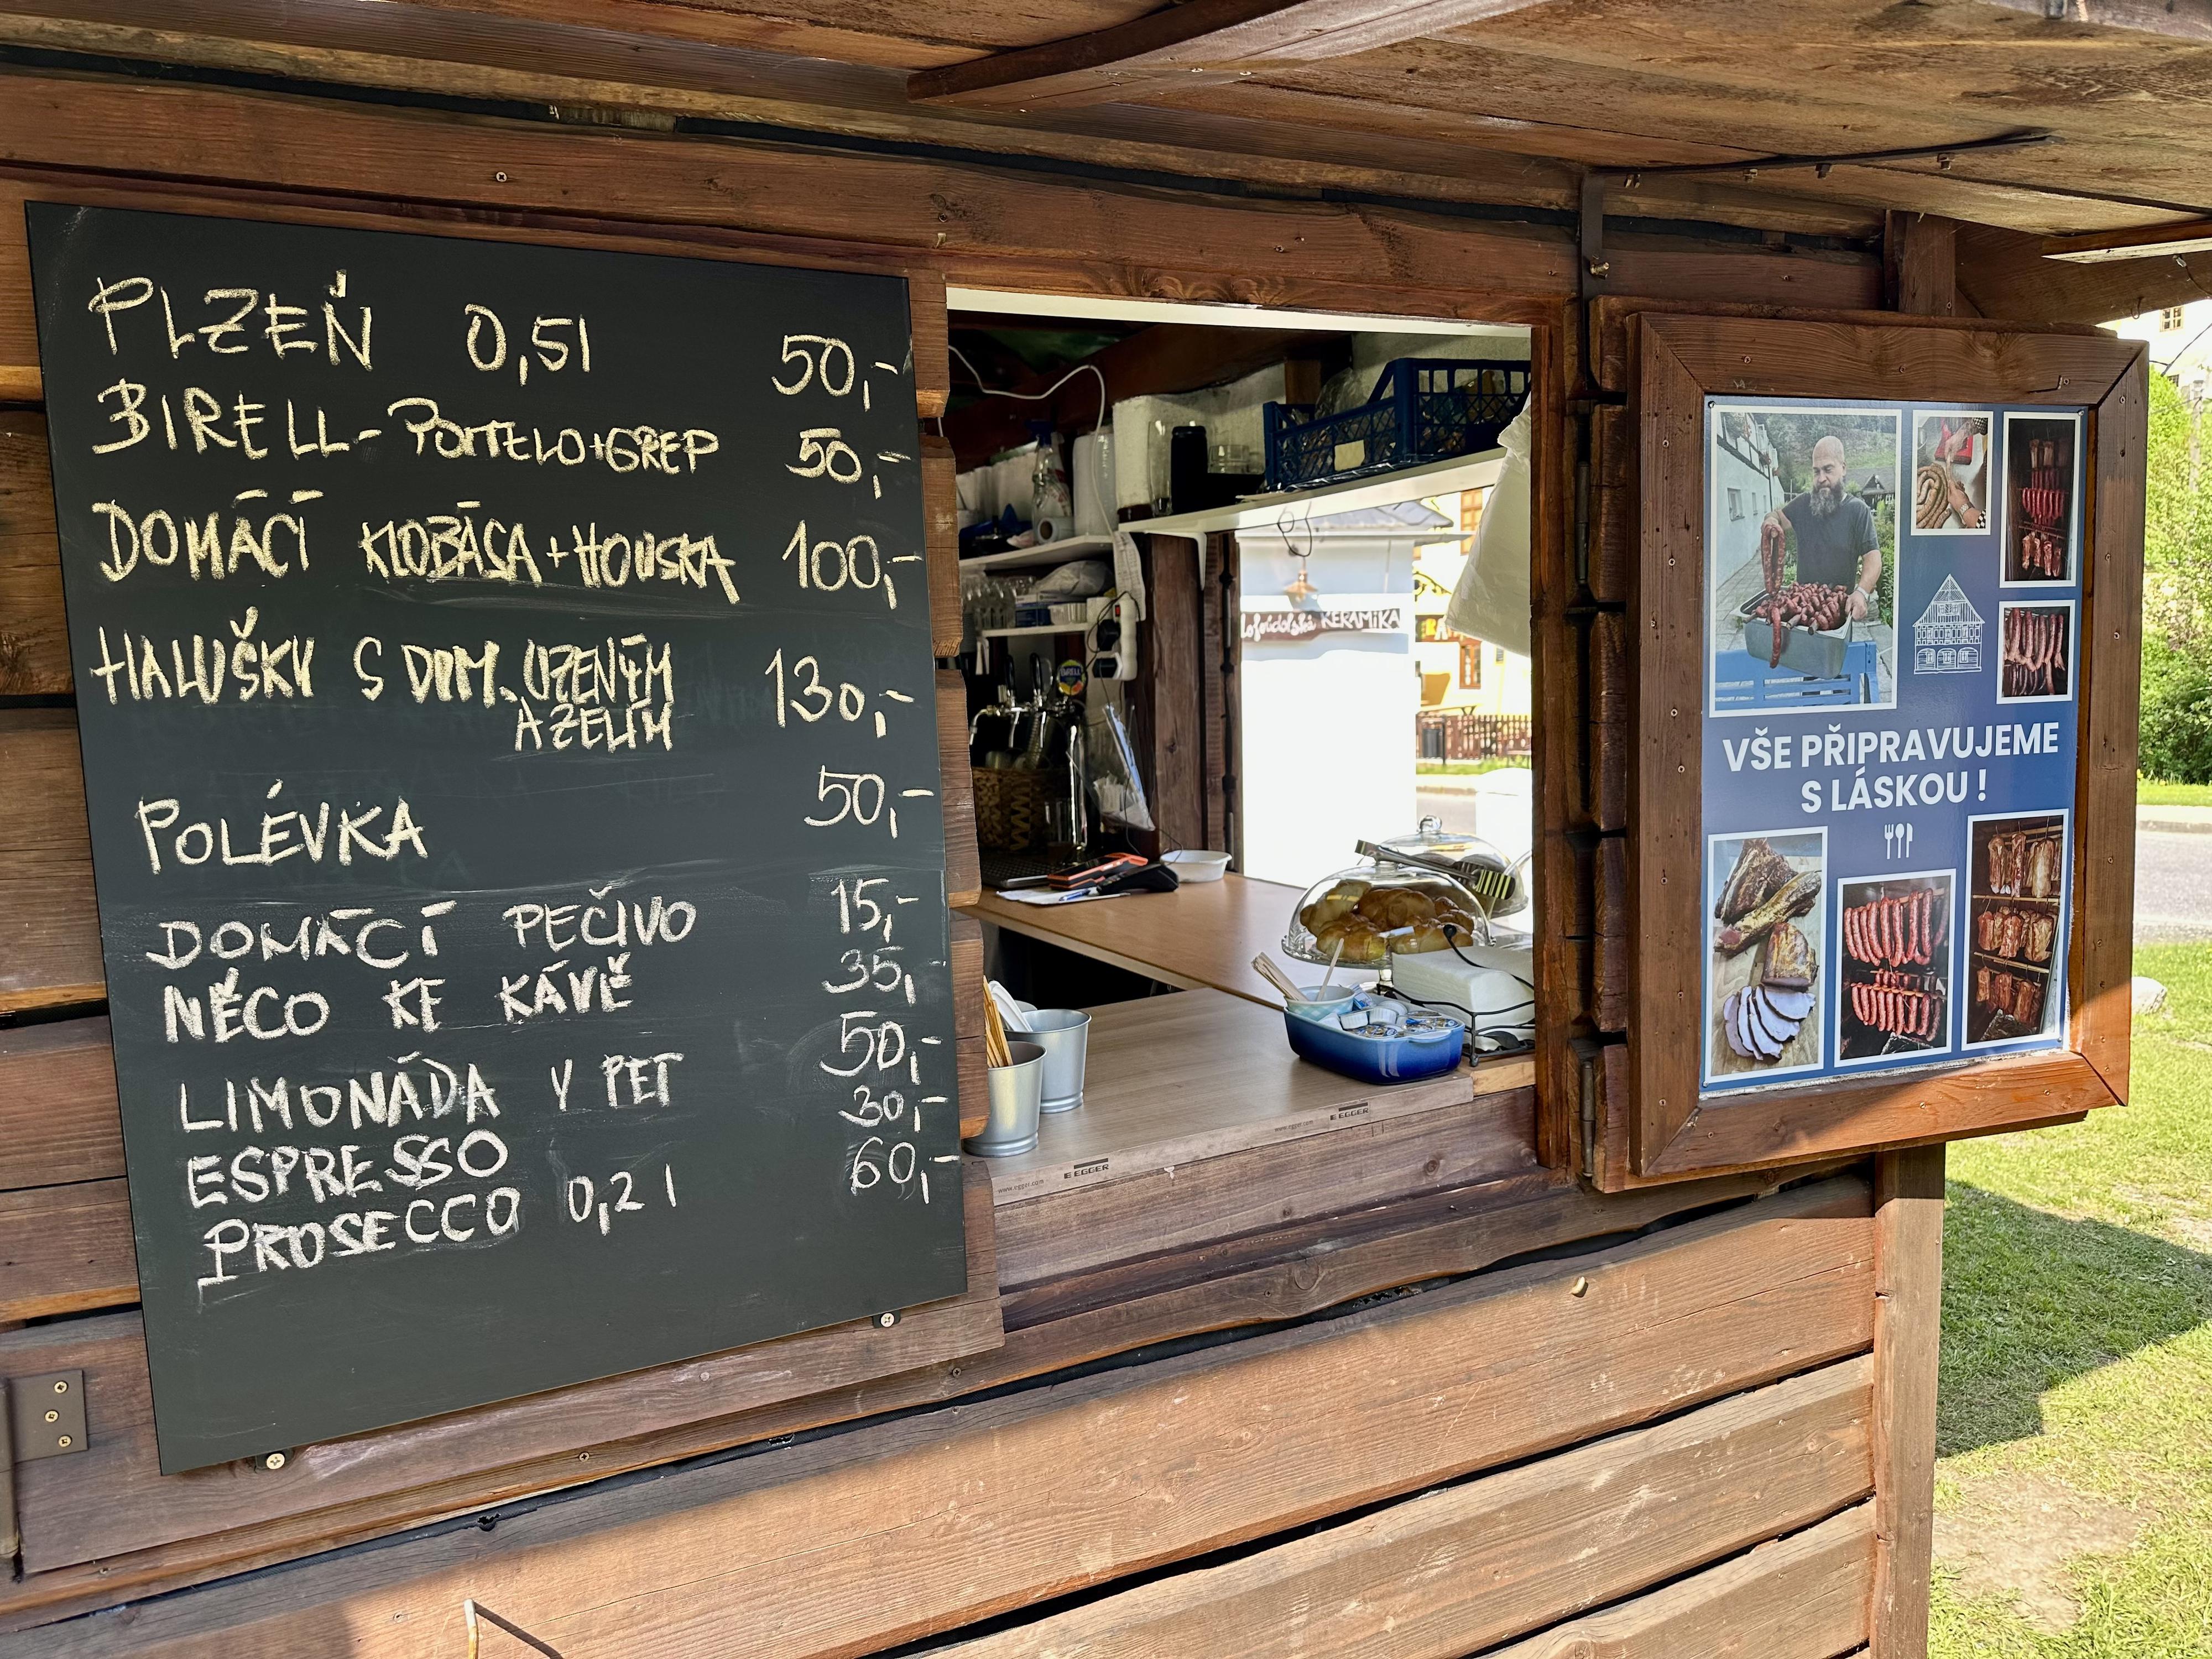 PLZEŇ 0,5l 50,-
BIRELL - POMELO+GREP 50,-
DOMÁCÍ KLOBÁSA + HOUSKA 100,-
HALUŠKY S DOM. UZENÝM 130,-
A ZELÍM
POLÉVKA 50,-
DOMÁCÍ PEČIVO 15,-
NĚCO KE KÁVĚ 35,-
LIMONÁDA V PET 50,-
ESPRESSO 30,-
PROSECCO 0,2 l 60,-
KERAMIKA
E EGGER
www.egger.com
E EGGER
www.egger.com
VŠE PŘIPRAVUJEME
S LÁSKOU !